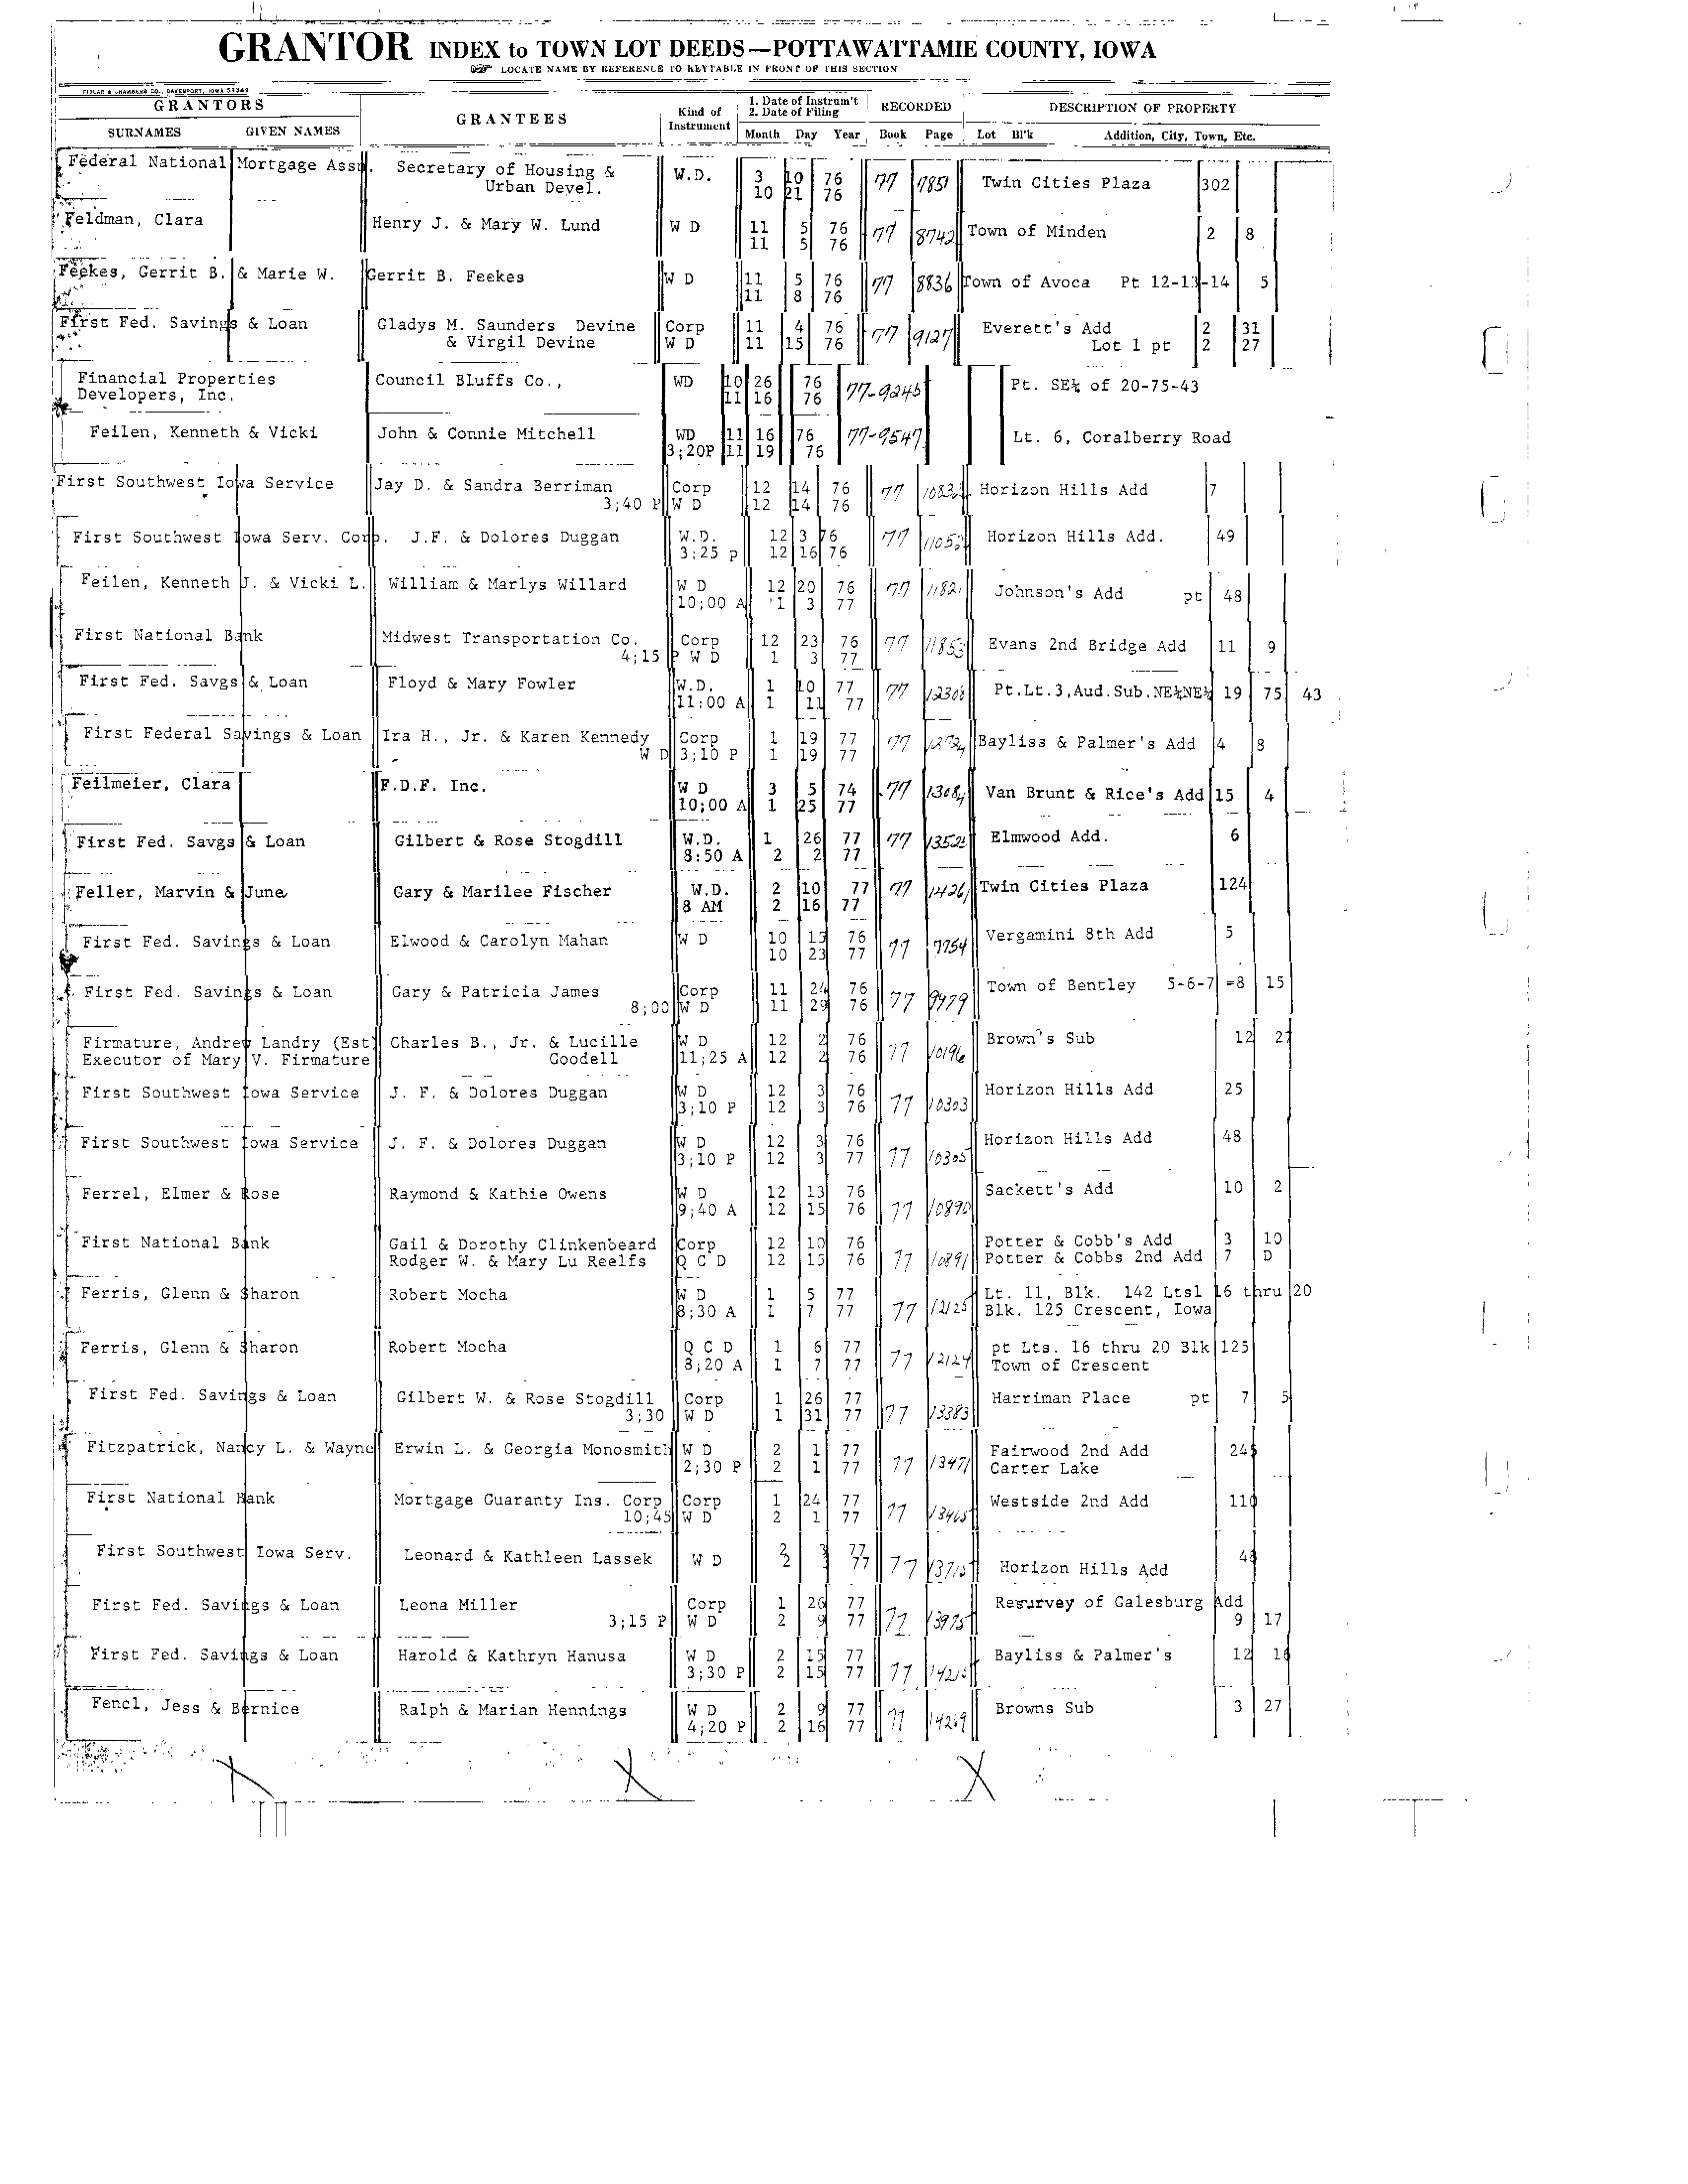 GRANTOR INDEX to TOWN LOT DEEDS—POTTAWATTAMIE COUNTY, IOWA
LOCATE NAME BY REFERENCE TO KEYTABLE IN FRONT OF THIS SECTION
FIDLAR & CHAMBERS CO., DAVENPORT, IOWA
GRANTORS GRANTEES Kind of Instrument 1. Date of Instrum't 2. Date of Filing RECORDED DESCRIPTION OF PROPERTY
SURNAMES GIVEN NAMES Month Day Year Book Page Lot Bl'k Addition, City, Town, Etc.
Federal National Mortgage Assn. Secretary of Housing & W.D. 3 10 76 77 7851 Twin Cities Plaza 302
Urban Devel. 10 21 76
Feldman, Clara Henry J. & Mary W. Lund W D 11 5 76 77 8742 Town of Minden 2 8
11 5 76
Feekes, Gerrit B. & Marie W. Gerrit B. Feekes W D 11 5 76 77 8836 Town of Avoca Pt 12-13-14 5
11 8 76
First Fed. Savings & Loan Gladys M. Saunders Devine Corp 11 4 76 77 9127 Everett's Add 2 31
& Virgil Devine W D 11 15 76 Lot 1 pt 2 27
Financial Properties Council Bluffs Co., WD 10 26 76 77-9245 Pt. SE¼ of 20-75-43
Developers, Inc. 11 16 76
Feilen, Kenneth & Vicki John & Connie Mitchell WD 11 16 76 77-9547 Lt. 6, Coralberry Road
3;20P 11 19 76
First Southwest Iowa Service Jay D. & Sandra Berriman Corp 12 14 76 77 Horizon Hills Add 7
3;40 P W D 12 14 76
First Southwest Iowa Serv. Corp. J.F. & Dolores Duggan W.D. 12 3 76 77 Horizon Hills Add. 49
3:25 p 12 16 76
Feilen, Kenneth J. & Vicki L. William & Marlys Willard W D 12 20 76 77 11821 Johnson's Add pt 48
10;00 A 1 3 77
First National Bank Midwest Transportation Co. Corp 12 23 76 77 11853 Evans 2nd Bridge Add 11 9
4;15 P W D 1 3 77
First Fed. Savgs & Loan Floyd & Mary Fowler W.D. 1 10 77 77 12308 Pt.Lt.3,Aud.Sub.NE¼NE¼ 19 75 43
11:00 A 1 11 77
First Federal Savings & Loan Ira H., Jr. & Karen Kennedy Corp 1 19 77 77 Bayliss & Palmer's Add 4 8
W D 3;10 P 1 19 77
Feilmeier, Clara F.D.F. Inc. W D 3 5 74 77 13084 Van Brunt & Rice's Add 15 4
10;00 A 1 25 77
First Fed. Savgs & Loan Gilbert & Rose Stogdill W.D. 1 26 77 77 Elmwood Add. 6
8:50 A 2 2 77
Feller, Marvin & June Gary & Marilee Fischer W.D. 2 10 77 77 14261 Twin Cities Plaza 124
8 AM 2 16 77
First Fed. Savings & Loan Elwood & Carolyn Mahan W D 10 15 76 77 7754 Vergamini 8th Add 5
10 23 77
First Fed. Savings & Loan Gary & Patricia James Corp 11 24 76 77 9979 Town of Bentley 5-6-7 =8 15
8;00 W D 11 29 76
Firmature, Andrew Landry (Est) Charles B., Jr. & Lucille W D 12 2 76 77 10196 Brown"s Sub 12 27
Executor of Mary V. Firmature Goodell 11;25 A 12 2 76
First Southwest Iowa Service J. F. & Dolores Duggan W D 12 3 76 77 10303 Horizon Hills Add 25
3;10 P 12 3 76
First Southwest Iowa Service J. F. & Dolores Duggan W D 12 3 76 77 10305 Horizon Hills Add 48
3;10 P 12 3 77
Ferrel, Elmer & Rose Raymond & Kathie Owens W D 12 13 76 77 10890 Sackett's Add 10 2
9;40 A 12 15 76
First National Bank Gail & Dorothy Clinkenbeard Corp 12 10 76 77 10891 Potter & Cobb's Add 3 10
Rodger W. & Mary Lu Reelfs Q C D 12 15 76 Potter & Cobbs 2nd Add 7 D
Ferris, Glenn & Sharon Robert Mocha W D 1 5 77 77 12125 Lt. 11, Blk. 142 Ltsl 16 thru 20
8;30 A 1 7 77 Blk. 125 Crescent, Iowa
Ferris, Glenn & Sharon Robert Mocha Q C D 1 6 77 77 12124 pt Lts. 16 thru 20 Blk 125
8;20 A 1 7 77 Town of Crescent
First Fed. Savings & Loan Gilbert W. & Rose Stogdill Corp 1 26 77 77 13383 Harriman Place pt 7 5
3;30 W D 1 31 77
Fitzpatrick, Nancy L. & Wayne Erwin L. & Georgia Monosmith W D 2 1 77 77 13471 Fairwood 2nd Add
2;30 P 2 1 77 Carter Lake
First National Bank Mortgage Guaranty Ins. Corp Corp 1 24 77 77 13465 Westside 2nd Add 110
10;45 W D 2 1 77
First Southwest Iowa Serv. Leonard & Kathleen Lassek W D 2 3 77 77 13715 Horizon Hills Add
2 3 77
First Fed. Savings & Loan Leona Miller Corp 1 26 77 77 13975 Resurvey of Galesburg Add
3;15 P W D 2 9 77 9 17
First Fed. Savings & Loan Harold & Kathryn Hanusa W D 2 15 77 77 14215 Bayliss & Palmer's 12 16
3;30 P 2 15 77
Fencl, Jess & Bernice Ralph & Marian Hennings W D 2 9 77 77 14269 Browns Sub 3 27
4;20 P 2 16 77